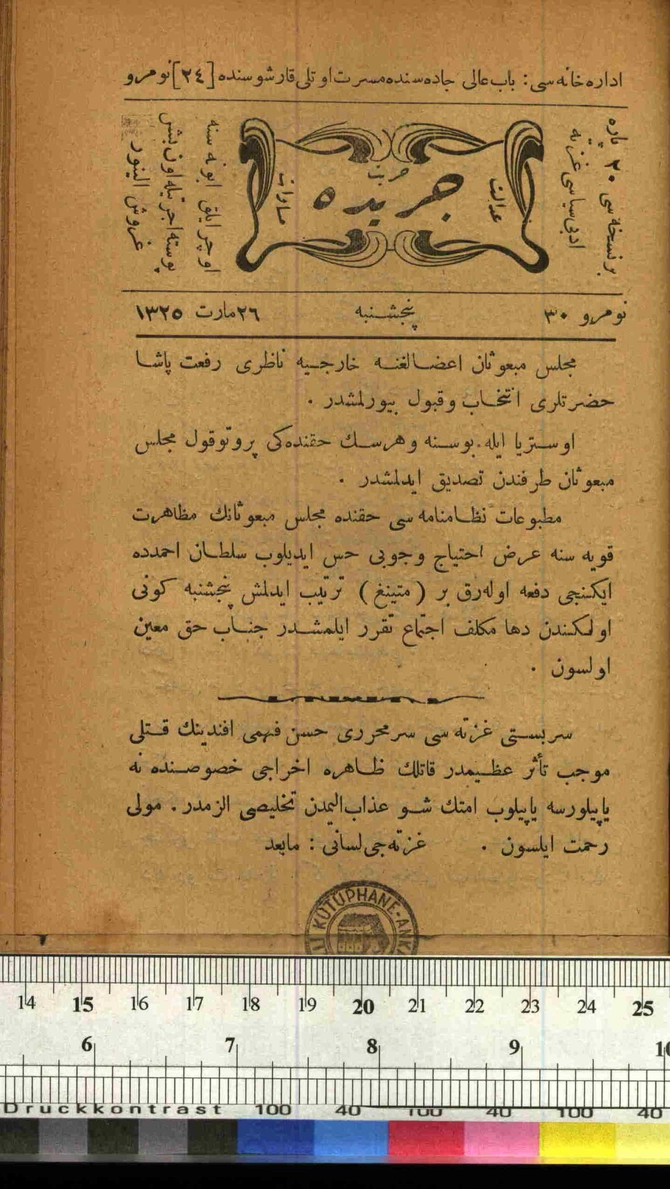 اداره‌خانه‌سی : باب عالی جاده‌سنده مسرت اوتلی قارشوسنده [٢٤] نومرو
برنسخه‌سی ٢٠ پاره
ادبی سیاسی غزته
عدالت
حریت
جریده
مساوات
اوچ آیلق ابونه سنه
پوسته اجرتیله اون بش
غروش الینور
نومرو ٣٠
پنجشنبه
٢٦ مارت ١٣٢٥
مجلس مبعوثان اعضالغنه خارجیه ناظری رفعت پاشا
حضرتلری انتخاب وقبول بیورلمشدر .
اوستریا ایله بوسنه وهرسك حقنده‌کی پروتوقول مجلس
مبعوثان طرفندن تصدیق ایدلمشدر .
مطبوعات نظامنامه‌سی حقنده مجلس مبعوثانك مظاهرت
قویه سنه عرض احتیاج وجوبی حس ایدیلوب سلطان احمدده
ایکنجی دفعه اوله‌رق بر (متینغ) ترتیب ایدلمش پنجشنبه کونی
اولکندن دها مکلف اجتماع تقرر ایلمشدر جناب حق معین
اولسون .
سربستی غزته سی سرمحرری حسن فهمی افندینك قتلی
موجب تأثر عظیمدر قاتلك ظاهره اخراجی خصوصنده نه
یاپیلورسه یاپیلوب امتك شو عذاب‌الیمدن تخلیصی الزمدر . مولی
رحمت ایلسون . غزته‌جی لسانی : مابعد
KÜTÜPHANE - ANKA
14 15 16 17 18 19 20 21 22 23 24 25
6 7 8 9 10
Druckkontrast 100 40 100 40 100 40